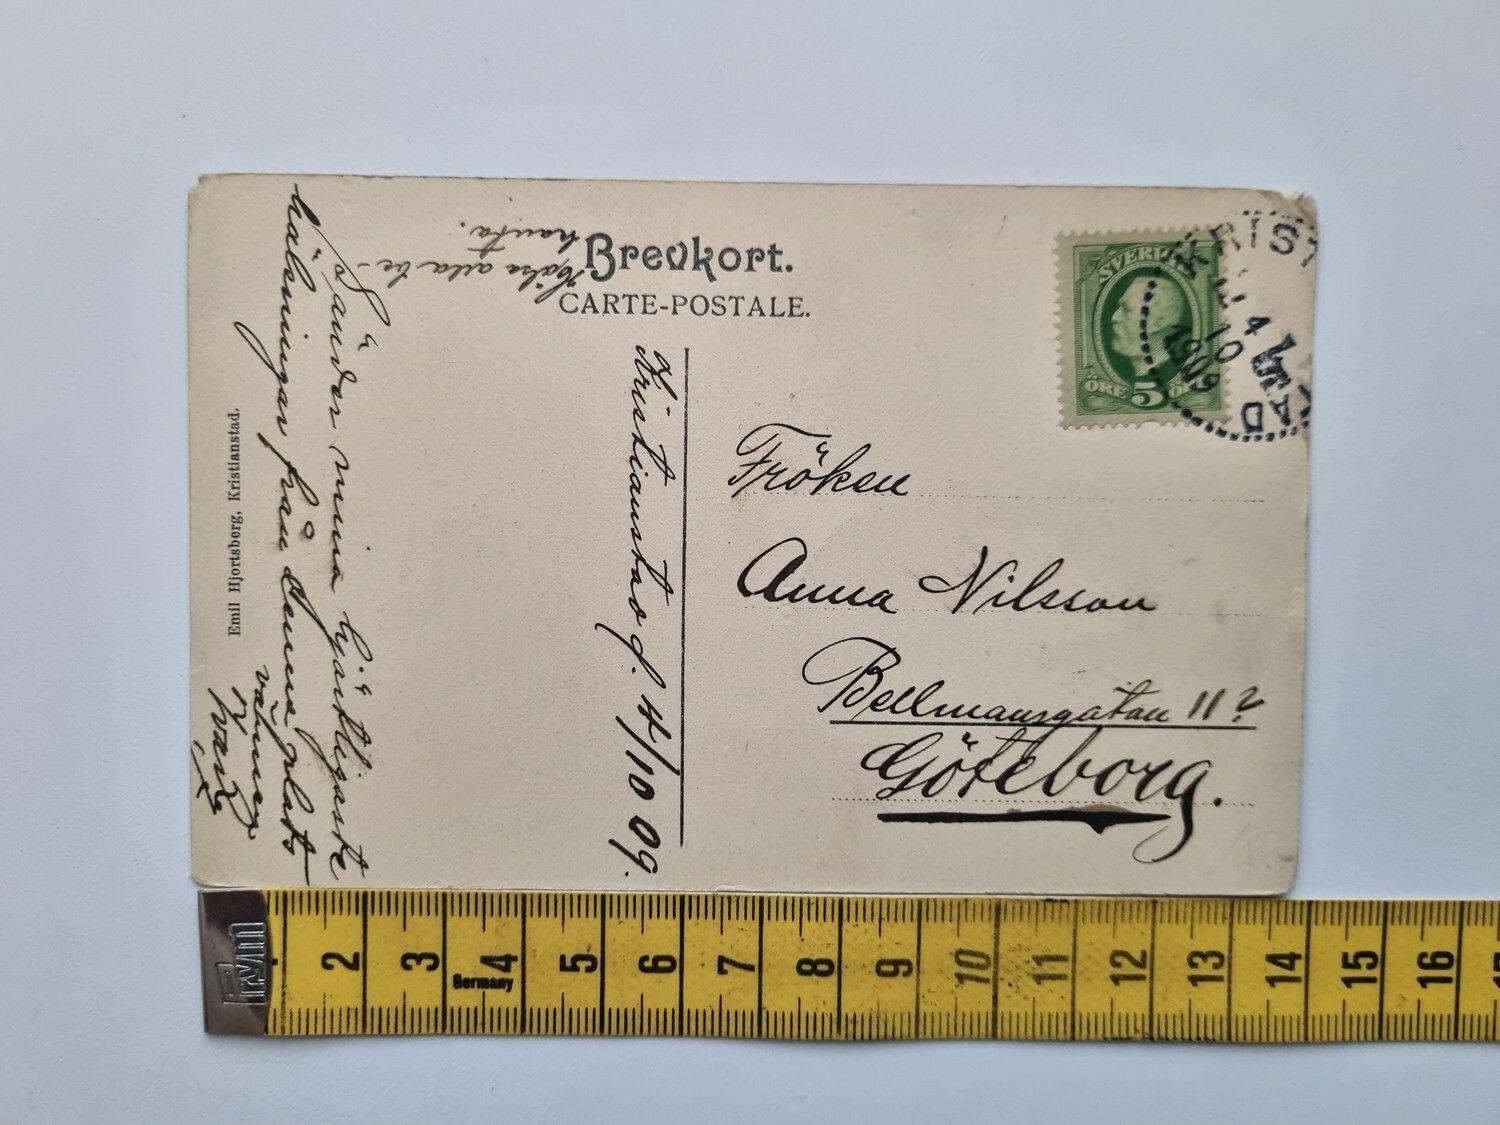 Brevkort.
CARTE-POSTALE.
SVERIGE
ÖRE 5 ÖRE
KRISTI
4
10
1909
STAD
Fröken
Anna Nilsson
Bellmansgatan 11 2
Göteborg.
Kristianstad d. 4/10 09.
Sänder mina hjärtligaste
hälsningar från denna plats
vännen
Helsa alla be-
kanta.
Emil Hjortsberg, Kristianstad.
Prym
2 3 4 5 6 7 8 9 10 11 12 13 14 15 16
Germany